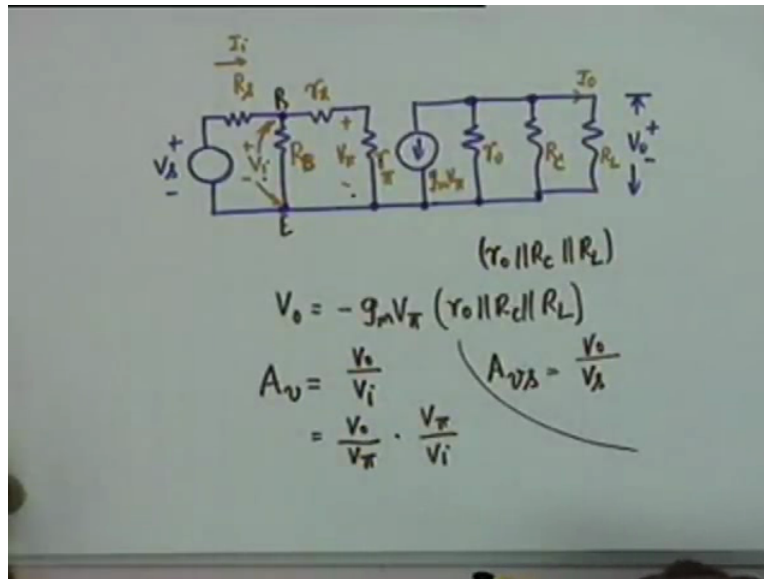 I_i
R_s B r_x I_o
+ V_s - + V_i - R_B + V_π - r_π g_m V_π r_o R_C R_L V_o + -
E
(r_o || R_C || R_L)
V_o = - g_m V_π (r_o || R_C || R_L)
A_v = V_o / V_i A_vs = V_o / V_s
= V_o / V_π · V_π / V_i